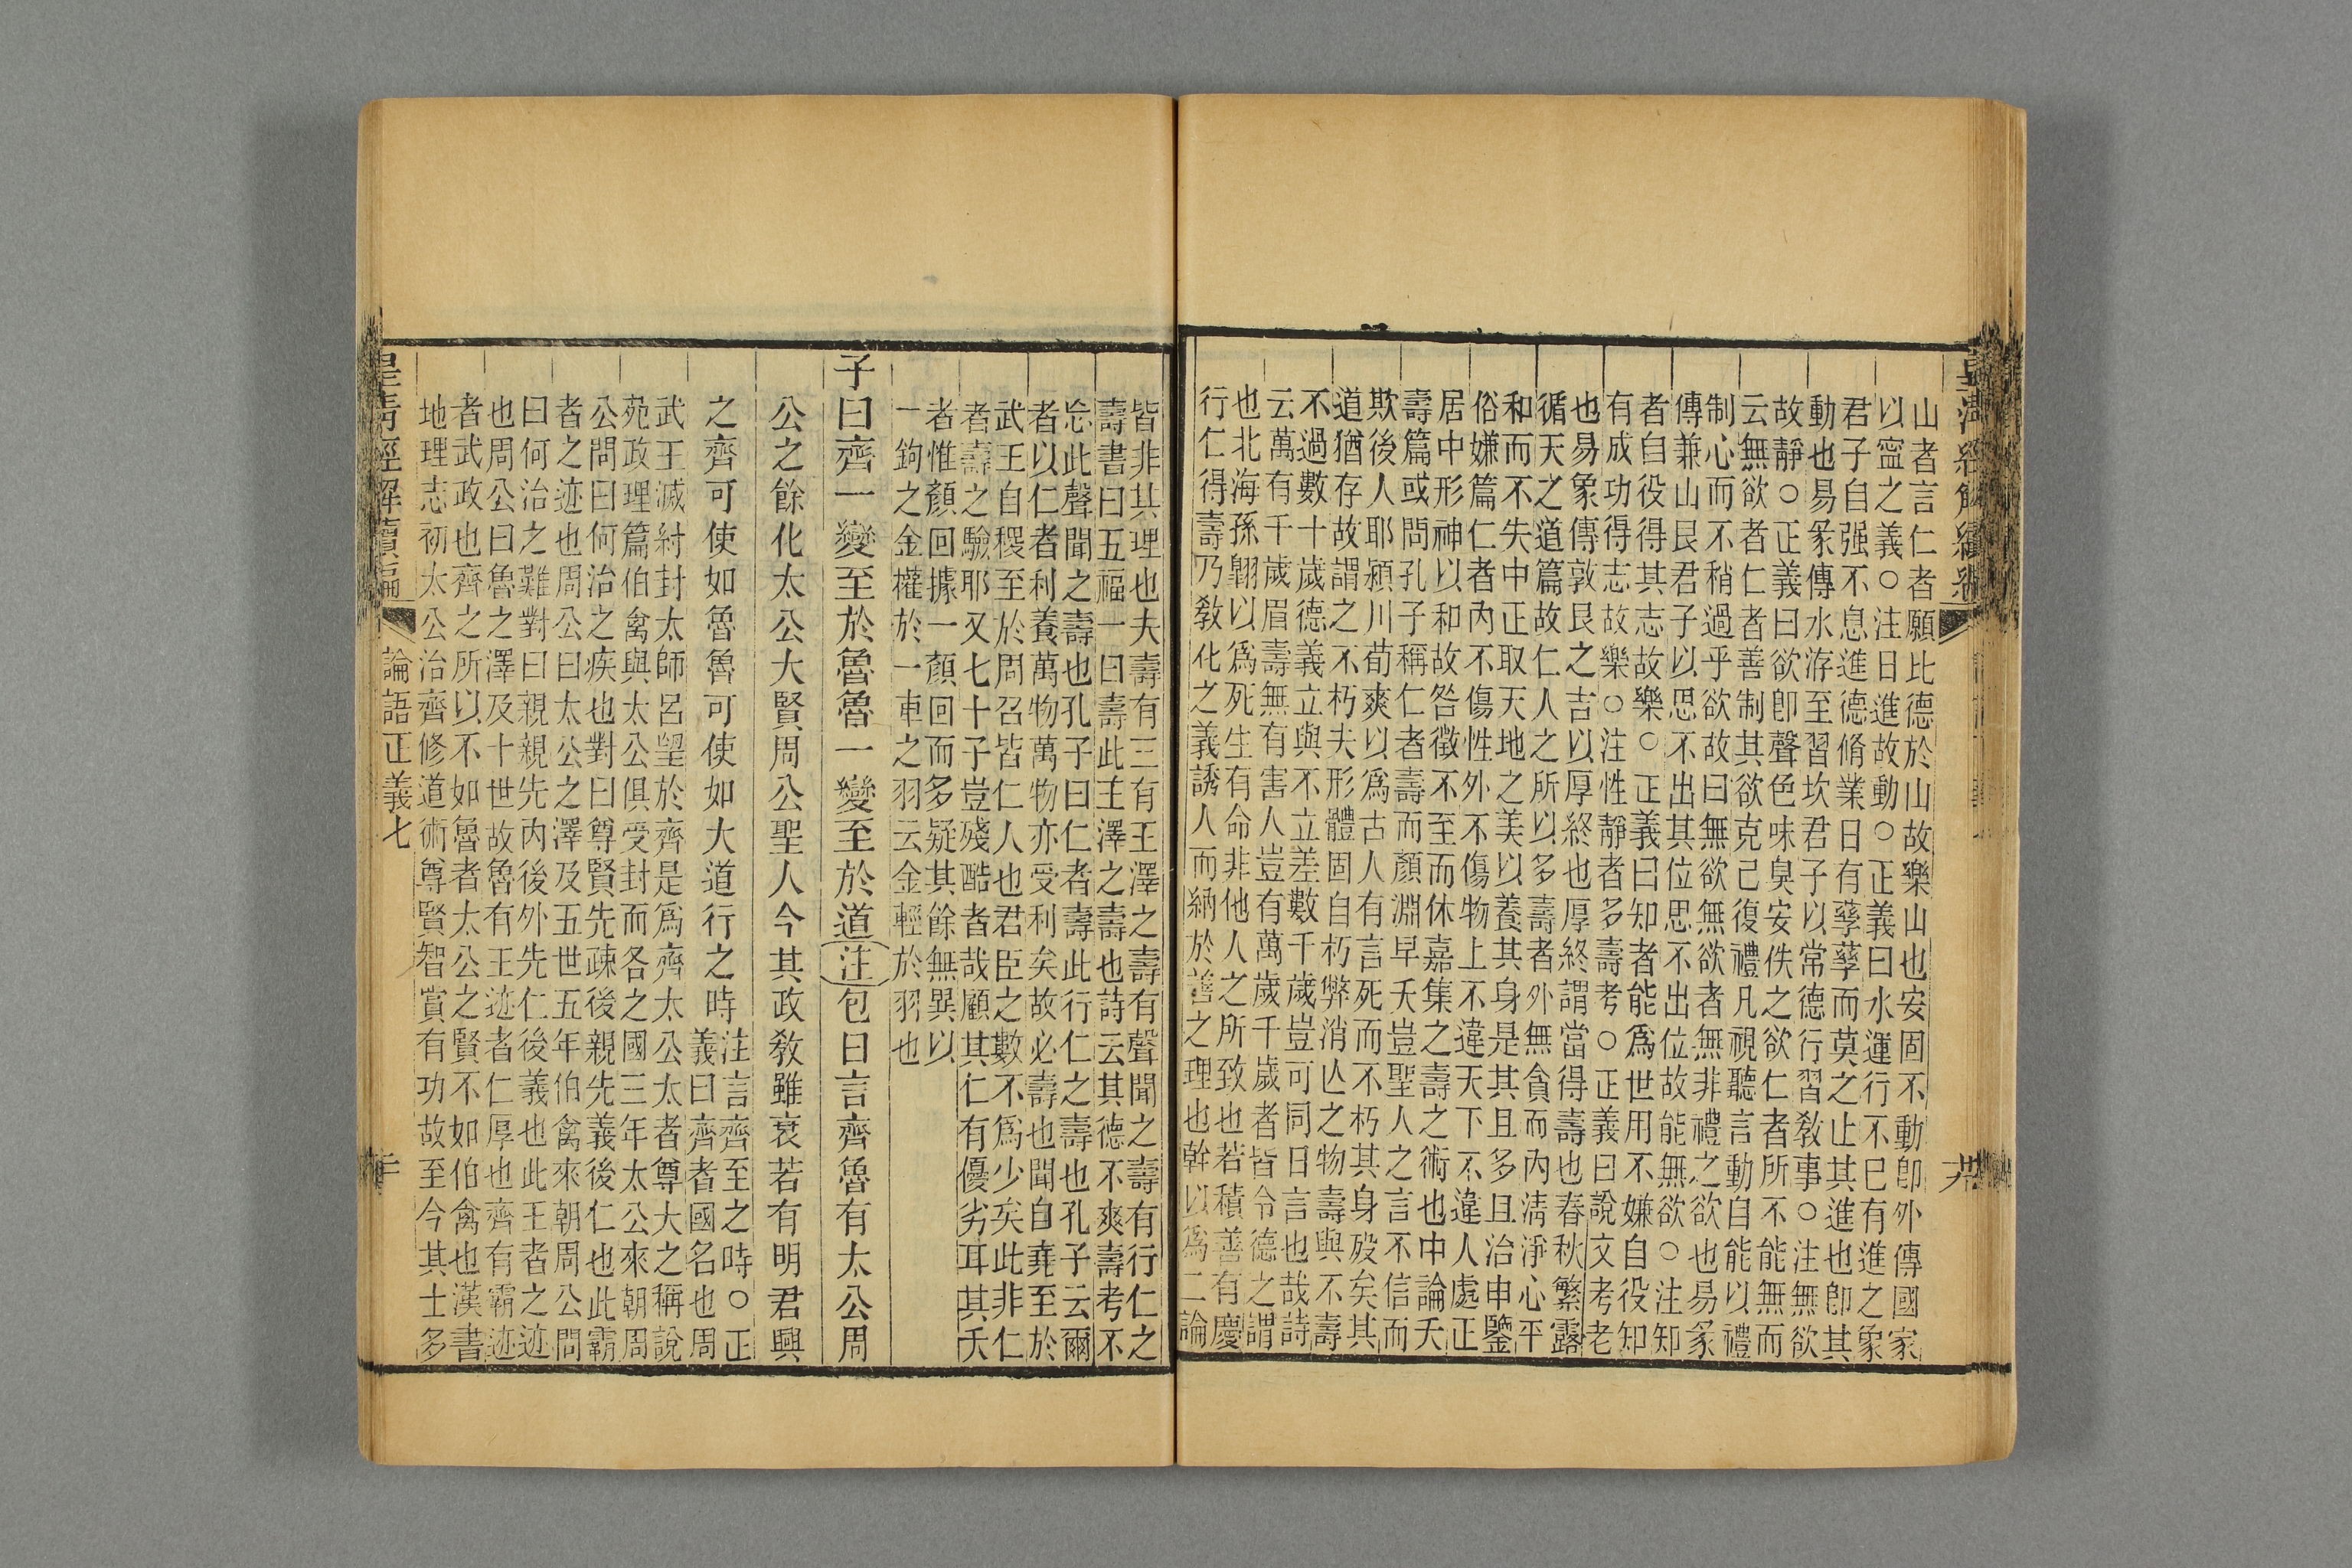 山者言仁者願比德於山故樂山也安固不動卽外傳國家
以寍之義○注日進故動○正義曰水運行不巳有進之象
君子自强不息進德脩業日有孳孳而莫之止其進也卽其
動也易彖傳水洊至習坎君子以常德行習敎事○注無欲
故靜○正義曰欲卽聲色味臭安佚之欲仁者所不能無而
云無欲者仁者善制其欲克己復禮凡視聽言動自能以禮
制心而不稍過乎欲故曰無欲無欲者無非禮之欲也易彖
傳兼山艮君子以思不出其位思不出位故能無欲○注知
者自役得其志故樂○正義曰知者能爲世用不嫌自役知
有成功得志故樂○注性靜者多壽考○正義曰說文考老
也易象傳敦艮之吉以厚終也厚終謂當得壽也春秋繁露
循天之道篇故仁人之所以多壽者外無貪而內淸淨心平
和而不失中正取天地之美以養其身是其且多且治申鑒
俗嫌篇仁者內不傷性外不傷物上不違天下不違人處正
居中形神以和故咎徵不至而休嘉集之壽之術也中論夭
壽篇或問孔子稱仁者壽而顏淵早夭豈聖人之言不信而
欺後人耶潁川荀爽以爲古人有言死而不朽其身歿矣其
道猶存故謂之不朽夫形體固自朽弊消亾之物壽與不壽
不過數十歲德義立與不立差數千歲豈可同日言也哉詩
云萬有千歲眉壽無有害人豈有萬歲千歲者皆令德之謂
也北海孫翺以爲死生有命非他人之所致也若積善有慶
行仁得壽乃敎化之義誘人而納於善之理也幹以爲二論
皆非其理也夫壽有三有王澤之壽有聲聞之壽有行仁之
壽書曰五福一曰壽此王澤之壽也詩云其德不爽壽考不
忘此聲聞之壽也孔子曰仁者壽此行仁之壽也孔子云爾
者以仁者利養萬物萬物亦受利矣故必壽也聞自堯至於
武王自稷至於周召皆仁人也君臣之數不爲少矣此非仁
者壽之驗耶又七十子豈殘酷者哉顧其仁有優劣耳其夭
者惟顏回據一顏回而多疑其餘無異以
一鉤之金權於一車之羽云金輕於羽也
子曰齊一變至於魯魯一變至於道注包曰言齊魯有太公周
公之餘化太公大賢周公聖人今其政敎雖衰若有明君興
之齊可使如魯魯可使如大道行之時
注言齊至之時○正
義曰齊者國名也周
武王滅紂封太師呂望於齊是爲齊太公太者尊大之稱說
苑政理篇伯禽與太公俱受封而各之國三年太公來朝周
公問曰何治之疾也對曰尊賢先疎後親先義後仁也此霸
者之迹也周公曰太公之澤及五世五年伯禽來朝周公問
曰何治之難對曰親親先內後外先仁後義也此王者之迹
也周公曰魯之澤及十世故魯有王迹者仁厚也齊有霸迹
者武政也齊之所以不如魯者太公之賢不如伯禽也漢書
地理志初太公治齊修道術尊賢智賞有功故至今其士多
皇清經解續編 論語正義七